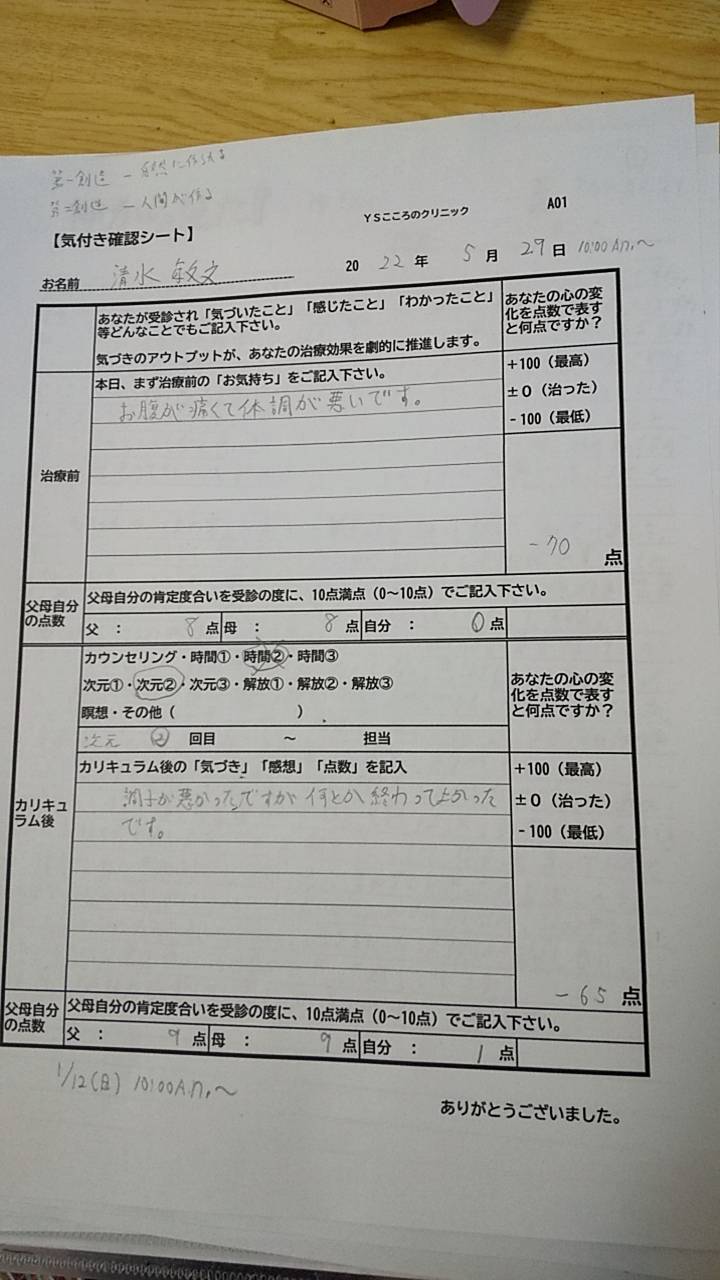 第一創造 － 自然に作られる
第二創造 － 人間が作る
YSこころのクリニック
A01
【気付き確認シート】
2022年 5月 29日 10:00A.m.～
お名前 清水 敏文
あなたが受診され「気づいたこと」「感じたこと」「わかったこと」
等どんなことでもご記入下さい。
気づきのアウトプットが、あなたの治療効果を劇的に推進します。
あなたの心の変
化を点数で表す
と何点ですか？
治療前
本日、まず治療前の「お気持ち」をご記入下さい。
お腹が痛くて体調が悪いです。
+100（最高）
±0（治った）
-100（最低）
-70 点
父母自分
の点数
父母自分の肯定度合いを受診の度に、10点満点（0～10点）でご記入下さい。
父 ： 8 点 母 ： 8 点 自分 ： 0 点
カリキュ
ラム後
カウンセリング・時間①・時間②・時間③
次元①・次元②・次元③・解放①・解放②・解放③
瞑想・その他（ ）
次元 ② 回目 ～ 担当
あなたの心の変
化を点数で表す
と何点ですか？
カリキュラム後の「気づき」「感想」「点数」を記入
調子が悪かったですが何とか終わってよかった
です。
+100（最高）
±0（治った）
-100（最低）
-65 点
父母自分
の点数
父母自分の肯定度合いを受診の度に、10点満点（0～10点）でご記入下さい。
父 ： 9 点 母 ： 9 点 自分 ： 1 点
1/12(日) 10:00A.m.～
ありがとうございました。